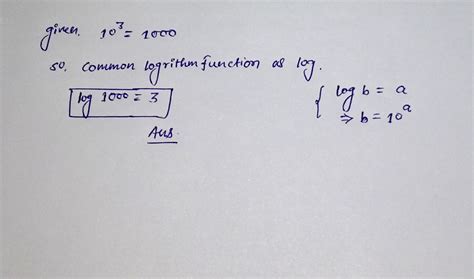 given. 10³ = 1000
so. Common logrithm function as log.
log 1000 = 3
Ans.
{ log b = a
⇒ b = 10ᵃ